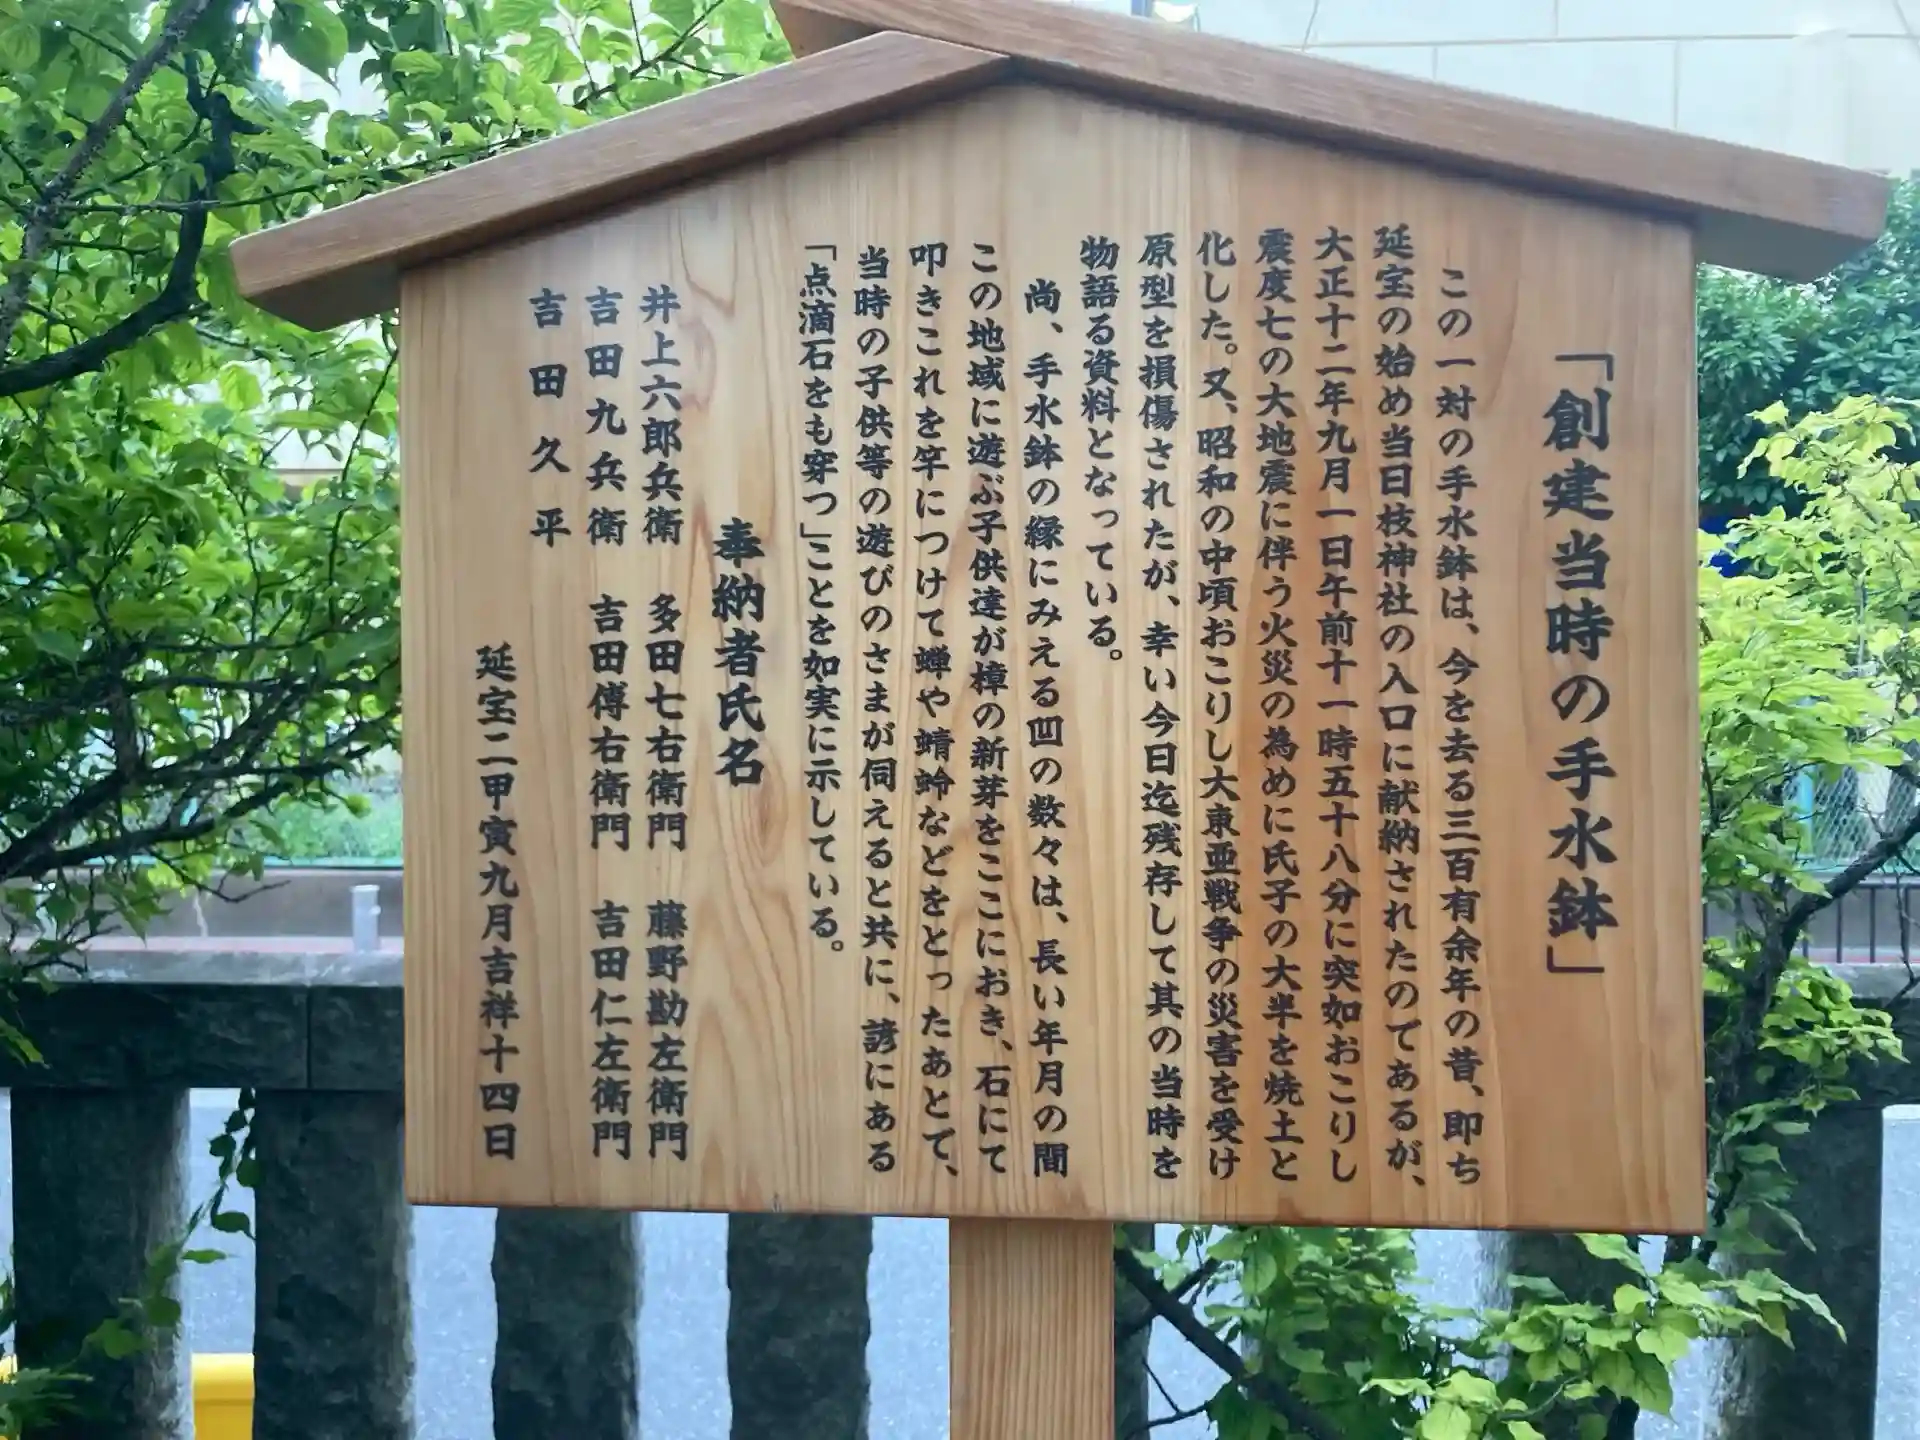 「創建当時の手水鉢」
この一対の手水鉢は、今を去る三百有余年の昔、即ち
延宝の始め当日枝神社の入口に献納されたのてあるが、
大正十二年九月一日午前十一時五十八分に突如おこりし
震度七の大地震に伴う火災の為めに氏子の大半を焼土と
化した。又、昭和の中頃おこりし大東亜戦争の災害を受け
原型を損傷されたが、幸い今日迄残存して其の当時を
物語る資料となっている。
尚、手水鉢の縁にみえる凹の数々は、長い年月の間
この地域に遊ぶ子供達が樟の新芽をここにおき、石にて
叩きこれを竿につけて蝉や蜻蛉などをとったあとて、
当時の子供等の遊びのさまが伺えると共に、諺にある
「点滴石をも穿つ」ことを如実に示している。
奉納者氏名
井上六郎兵衛 多田七右衛門 藤野勘左衛門
吉田九兵衛 吉田傳右衛門 吉田仁左衛門
吉田久平
延宝二甲寅九月吉祥十四日